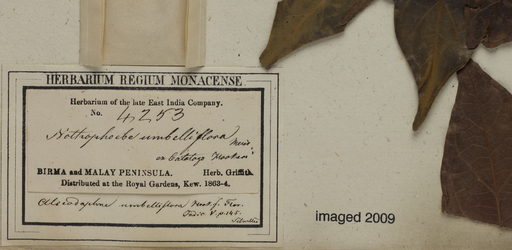 HERBARIUM REGIUM MONACENSE
Herbarium of the late East India Company.
No. 4253
Nothaphoebe umbelliflora
BIRMA and MALAY PENINSULA. Herb. Griffith.
Distributed at the Royal Gardens, Kew. 1863-4.
Alseodaphne umbelliflora Hook. f. Flor.
Indic V. p. 145.
imaged 2009